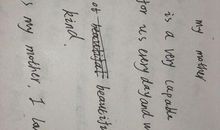 my mother
is a very capable
for us every day and w
of beautiful beautif
kind.
s my mother. I lo